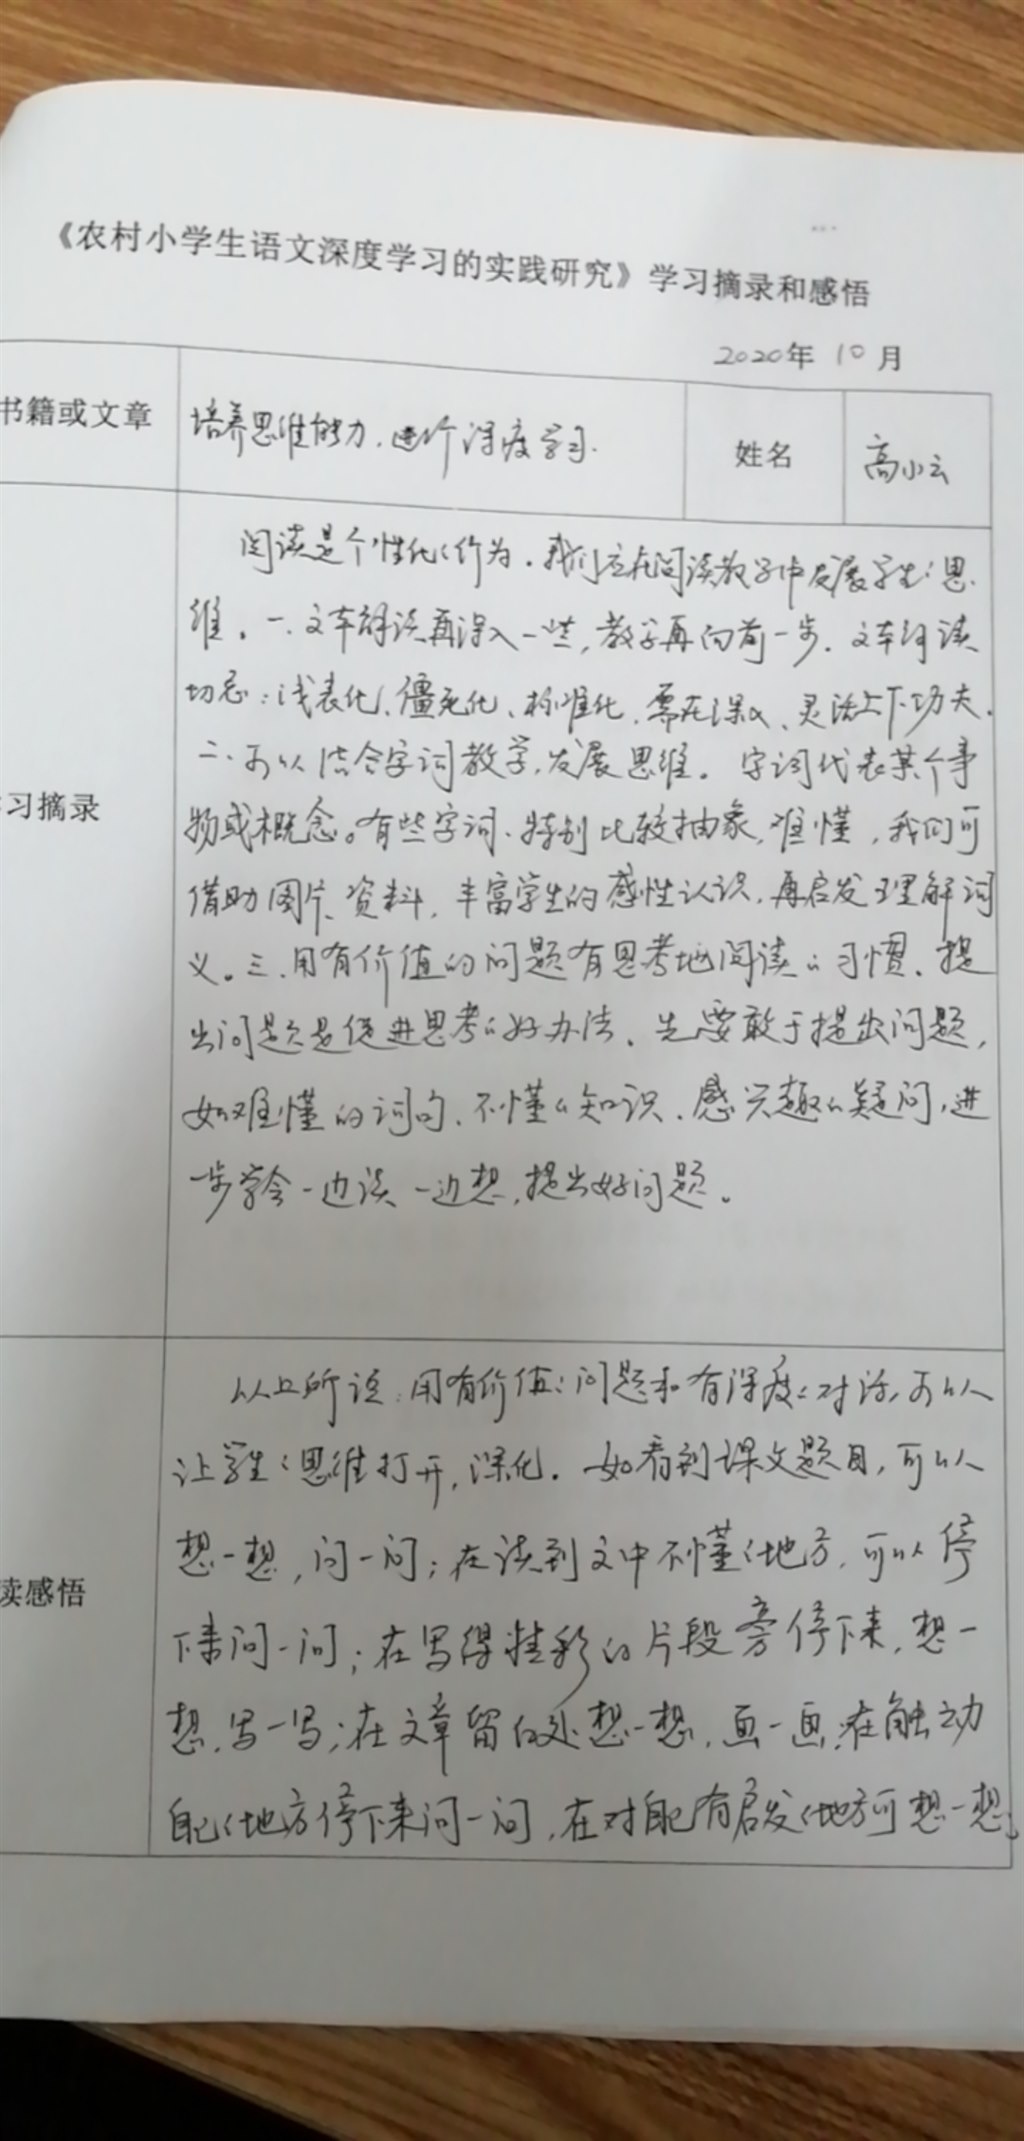 《农村小学生语文深度学习的实践研究》学习摘录和感悟
2020年 10 月
书籍或文章
培养思维能力，进行深度学习.
姓名
高小云
阅读是个性化的行为。我们应在阅读教学中发展学生的思
维。一.文本解读再深入一些,教学再向前一步.文本解读
切忌:浅表化、僵死化、标准化,需在深入、灵活上下功夫.
二.可以结合字词教学,发展思维。字词代表某个事
物或概念。有些字词、特别比较抽象,难懂,我们可
习摘录
借助图片、资料,丰富学生的感性认识,再启发理解词
义。三.用有价值的问题有思考地阅读的习惯、提
出问题是促进思考的好办法、先要敢于提出问题,
如难懂的词句、不懂的知识、感兴趣的疑问,进
一步学会一边读一边想,提出好问题。
以上所说:用有价值的问题和有深度的对话,可以
让学生的思维打开,深化.如看到课文题目,可以
想一想,问一问;在读到文中不懂的地方,可以停
读感悟
下来问一问;在写得精彩的片段旁停下来,想一
想,写一写;在文章留白处想一想,画一画;在触动
自己的地方停下来问一问,在对自己有启发的地方可想一想。